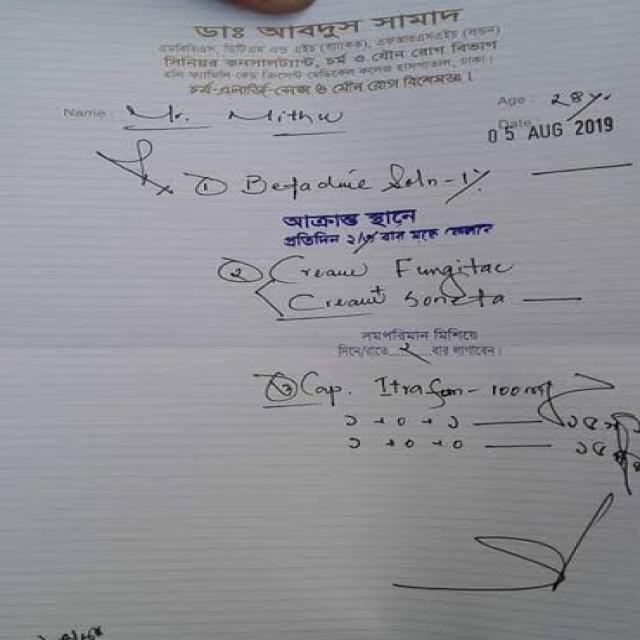 ডাঃ আবদুস সামাদ
এমবিবিএস, ডিটিএম এন্ড এইচ (ব্যাংকক), এফআরএসএইচ (লন্ডন)
সিনিয়র কনসালট্যান্ট, চর্ম ও যৌন রোগ বিভাগ
হলি ফ্যামিলি রেড ক্রিসেন্ট মেডিকেল কলেজ হাসপাতাল, ঢাকা।
চর্ম-এলার্জি-সেক্স ও যৌন রোগ বিশেষজ্ঞ।
Name: Mr. Mithu Age: 28 yr.
Date: 05 AUG 2019
Rx ① Betadine Soln - 1%
আক্রান্ত স্থানে
প্রতিদিন ২/৩ বার
② Cream Fungitac
Cream
সমপরিমান মিশিয়ে
দিনে/রাতে ২ বার লাগাবেন।
③ Cap. 100mg
১ + ০ + ১
১ + ০ + ০